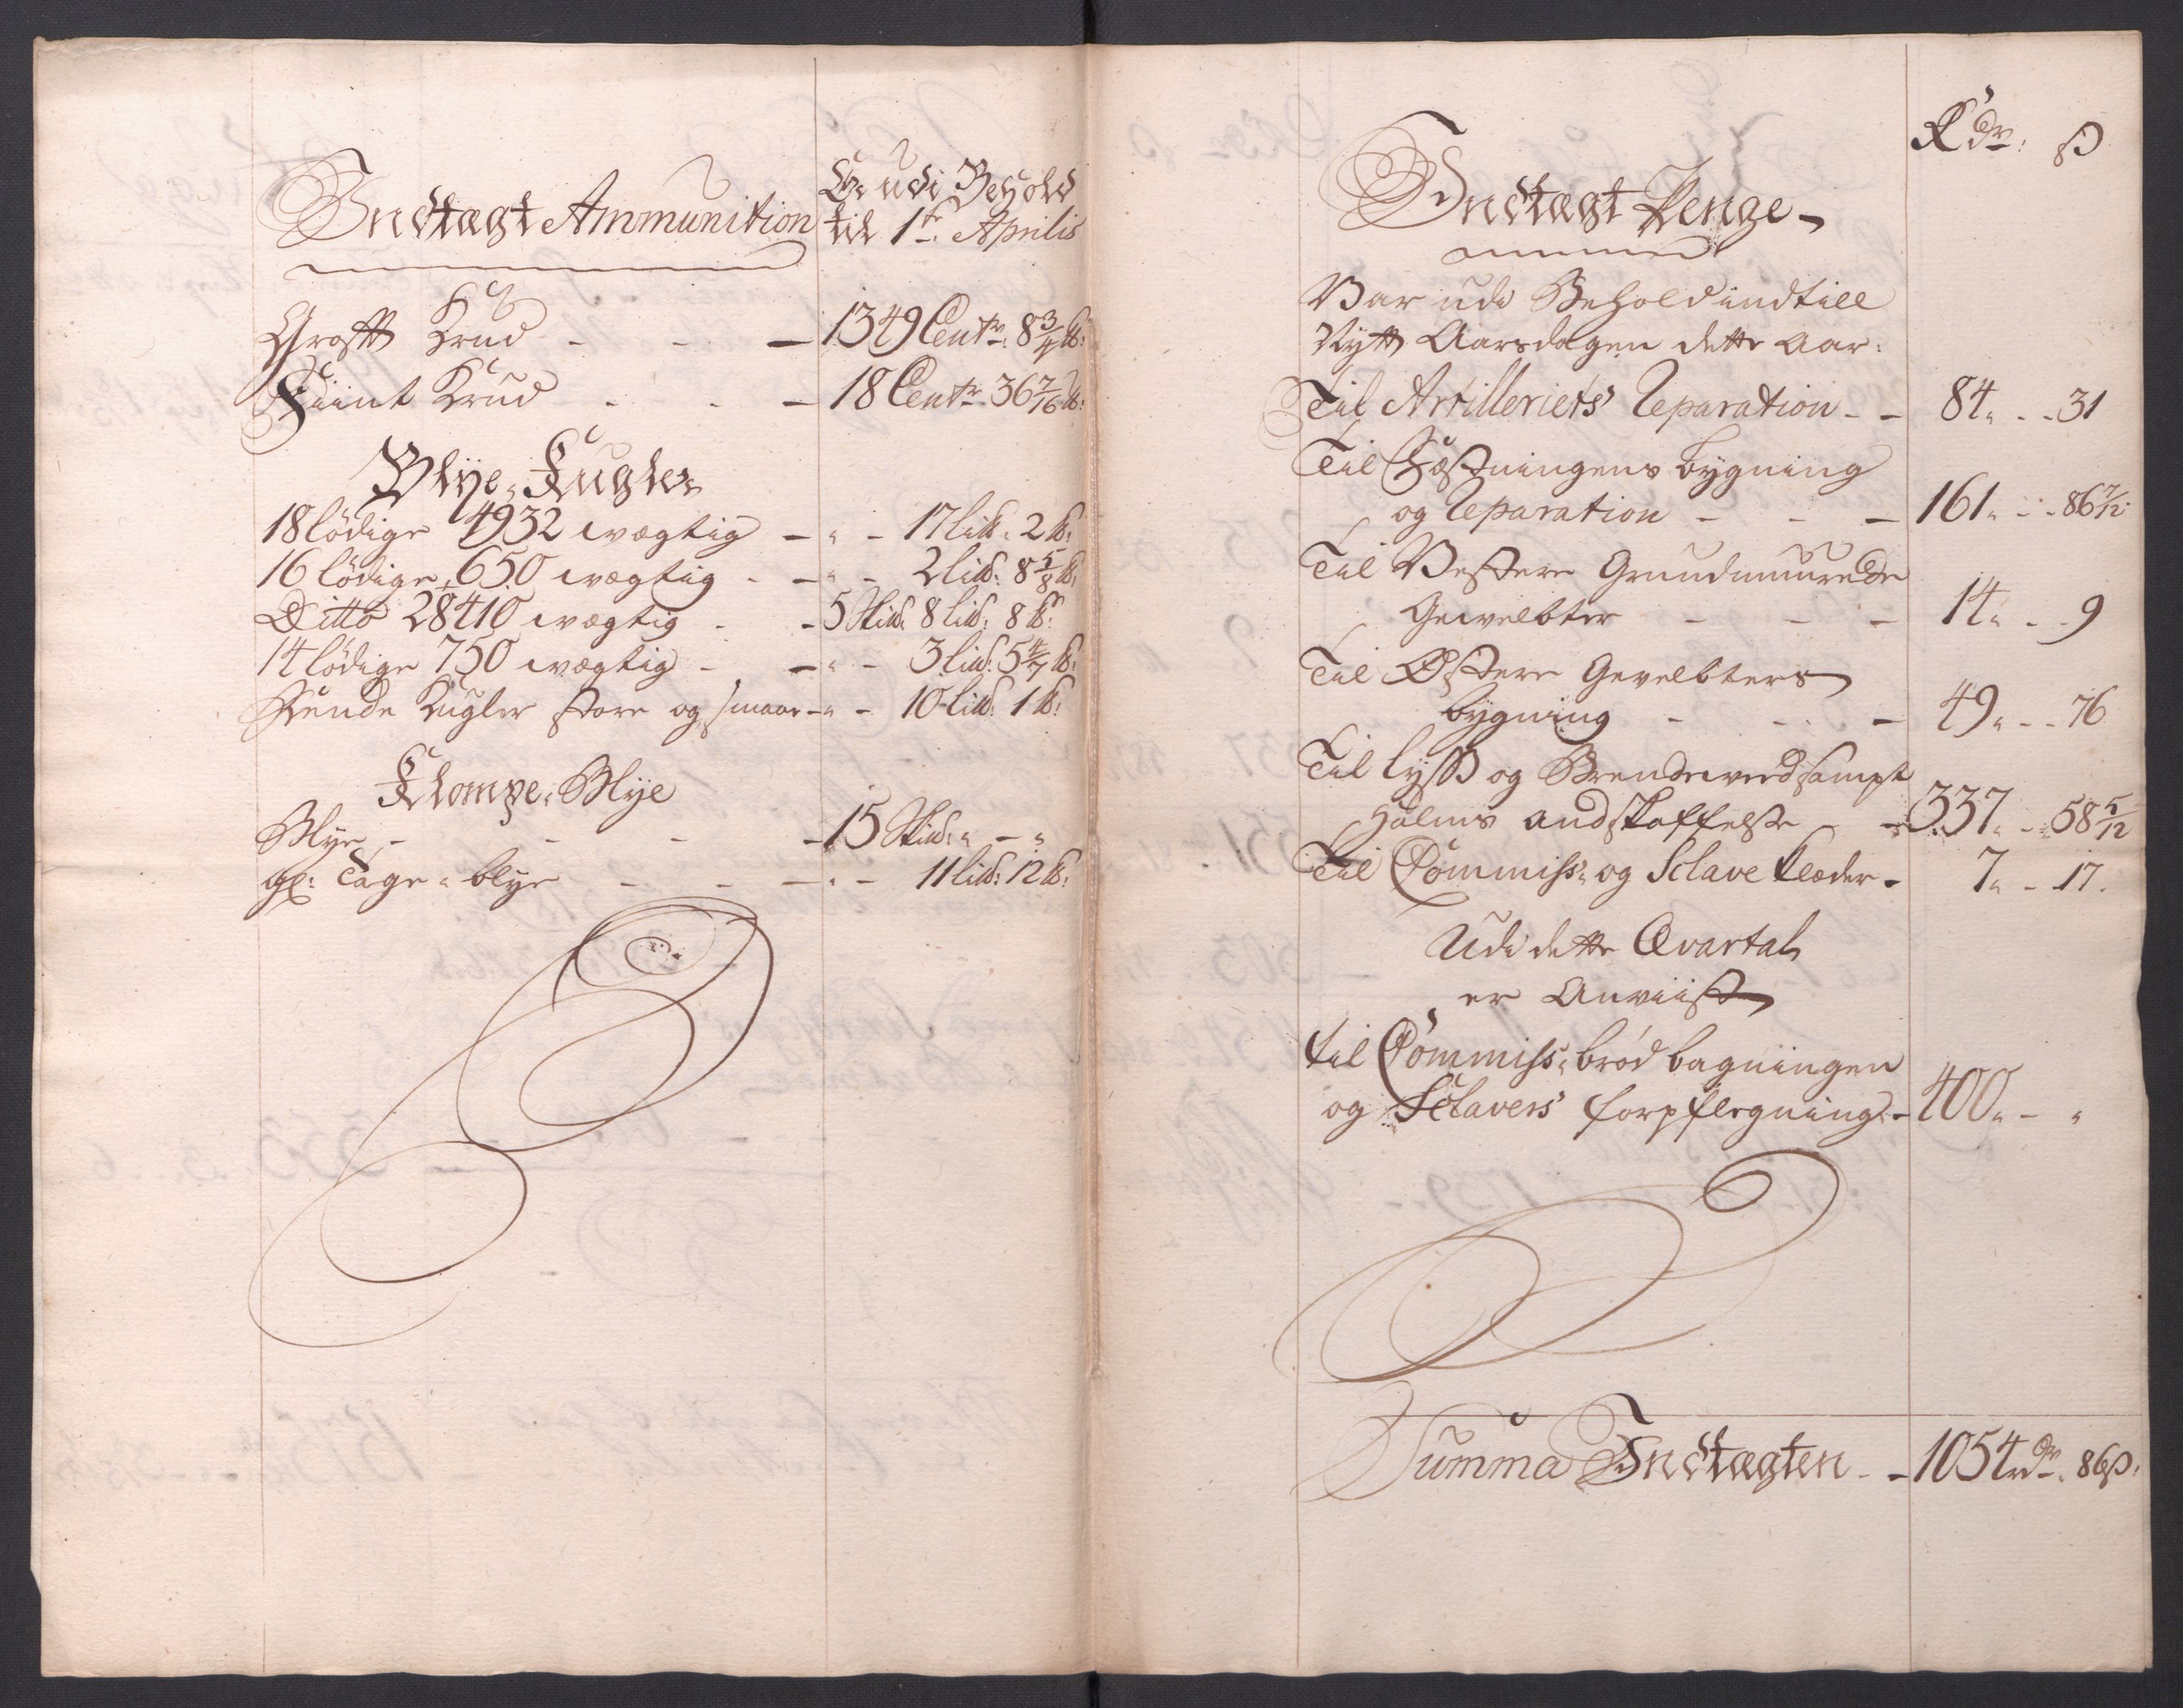 Indtægt Ammunition
Er udi Behold
til 1te Aprilis
Groft Krud - - - 1349 Centr: 8 3/4 ℔:
Fiint Krud - - - 18 Centr: 36 7/16 ℔:
Blye-Kugler
18 lödige 4932 wægtig - " - 17 Li℔: 2 ℔:
16 lödige, 650 wægtig - - " - 2 Li℔: 8 5/8 ℔:
Ditto 28410 wægtig - - 5 Ski℔: 8 Li℔: 8 ℔:
14 lödige 750 wægtig - - " - 3 Li℔: 5 4/7 ℔:
Kugler store og smaae - " - 10 Li℔: 1 ℔:
Klompe-Blye
Blye - - - - 15 Ski℔: " - "
gl: Tage-blye - - - " - 11 Li℔: 12 ℔:
Rdr: ß
Indtægt Penge
Var udi Behold indtill
Nytt Aarsdagen dette Aar:
Til Artilleriets Reparation - - 84 " - - 31
Til Fæstningens bygning
og Reparation - - - 161 " - - 86 7/12
Til Vestere Grundmurede
Gewelbter - - - 14 " - - 9
Til Østere Gevelbters
bygning - - - 49 " - - 76
Til Lyss og Brendeveed sampt
Halms andskaffelse - - 337 " - - 58 5/12
Til Commiss- og Sclave Klæder - 7 " - 17.
Udi dette Qvartal
er Anviist
til Commiss-brød bagningen
og Sclavers forpflegning - 400 " - "
Summa Indtægten - - 1054 rdr. 86 ß: